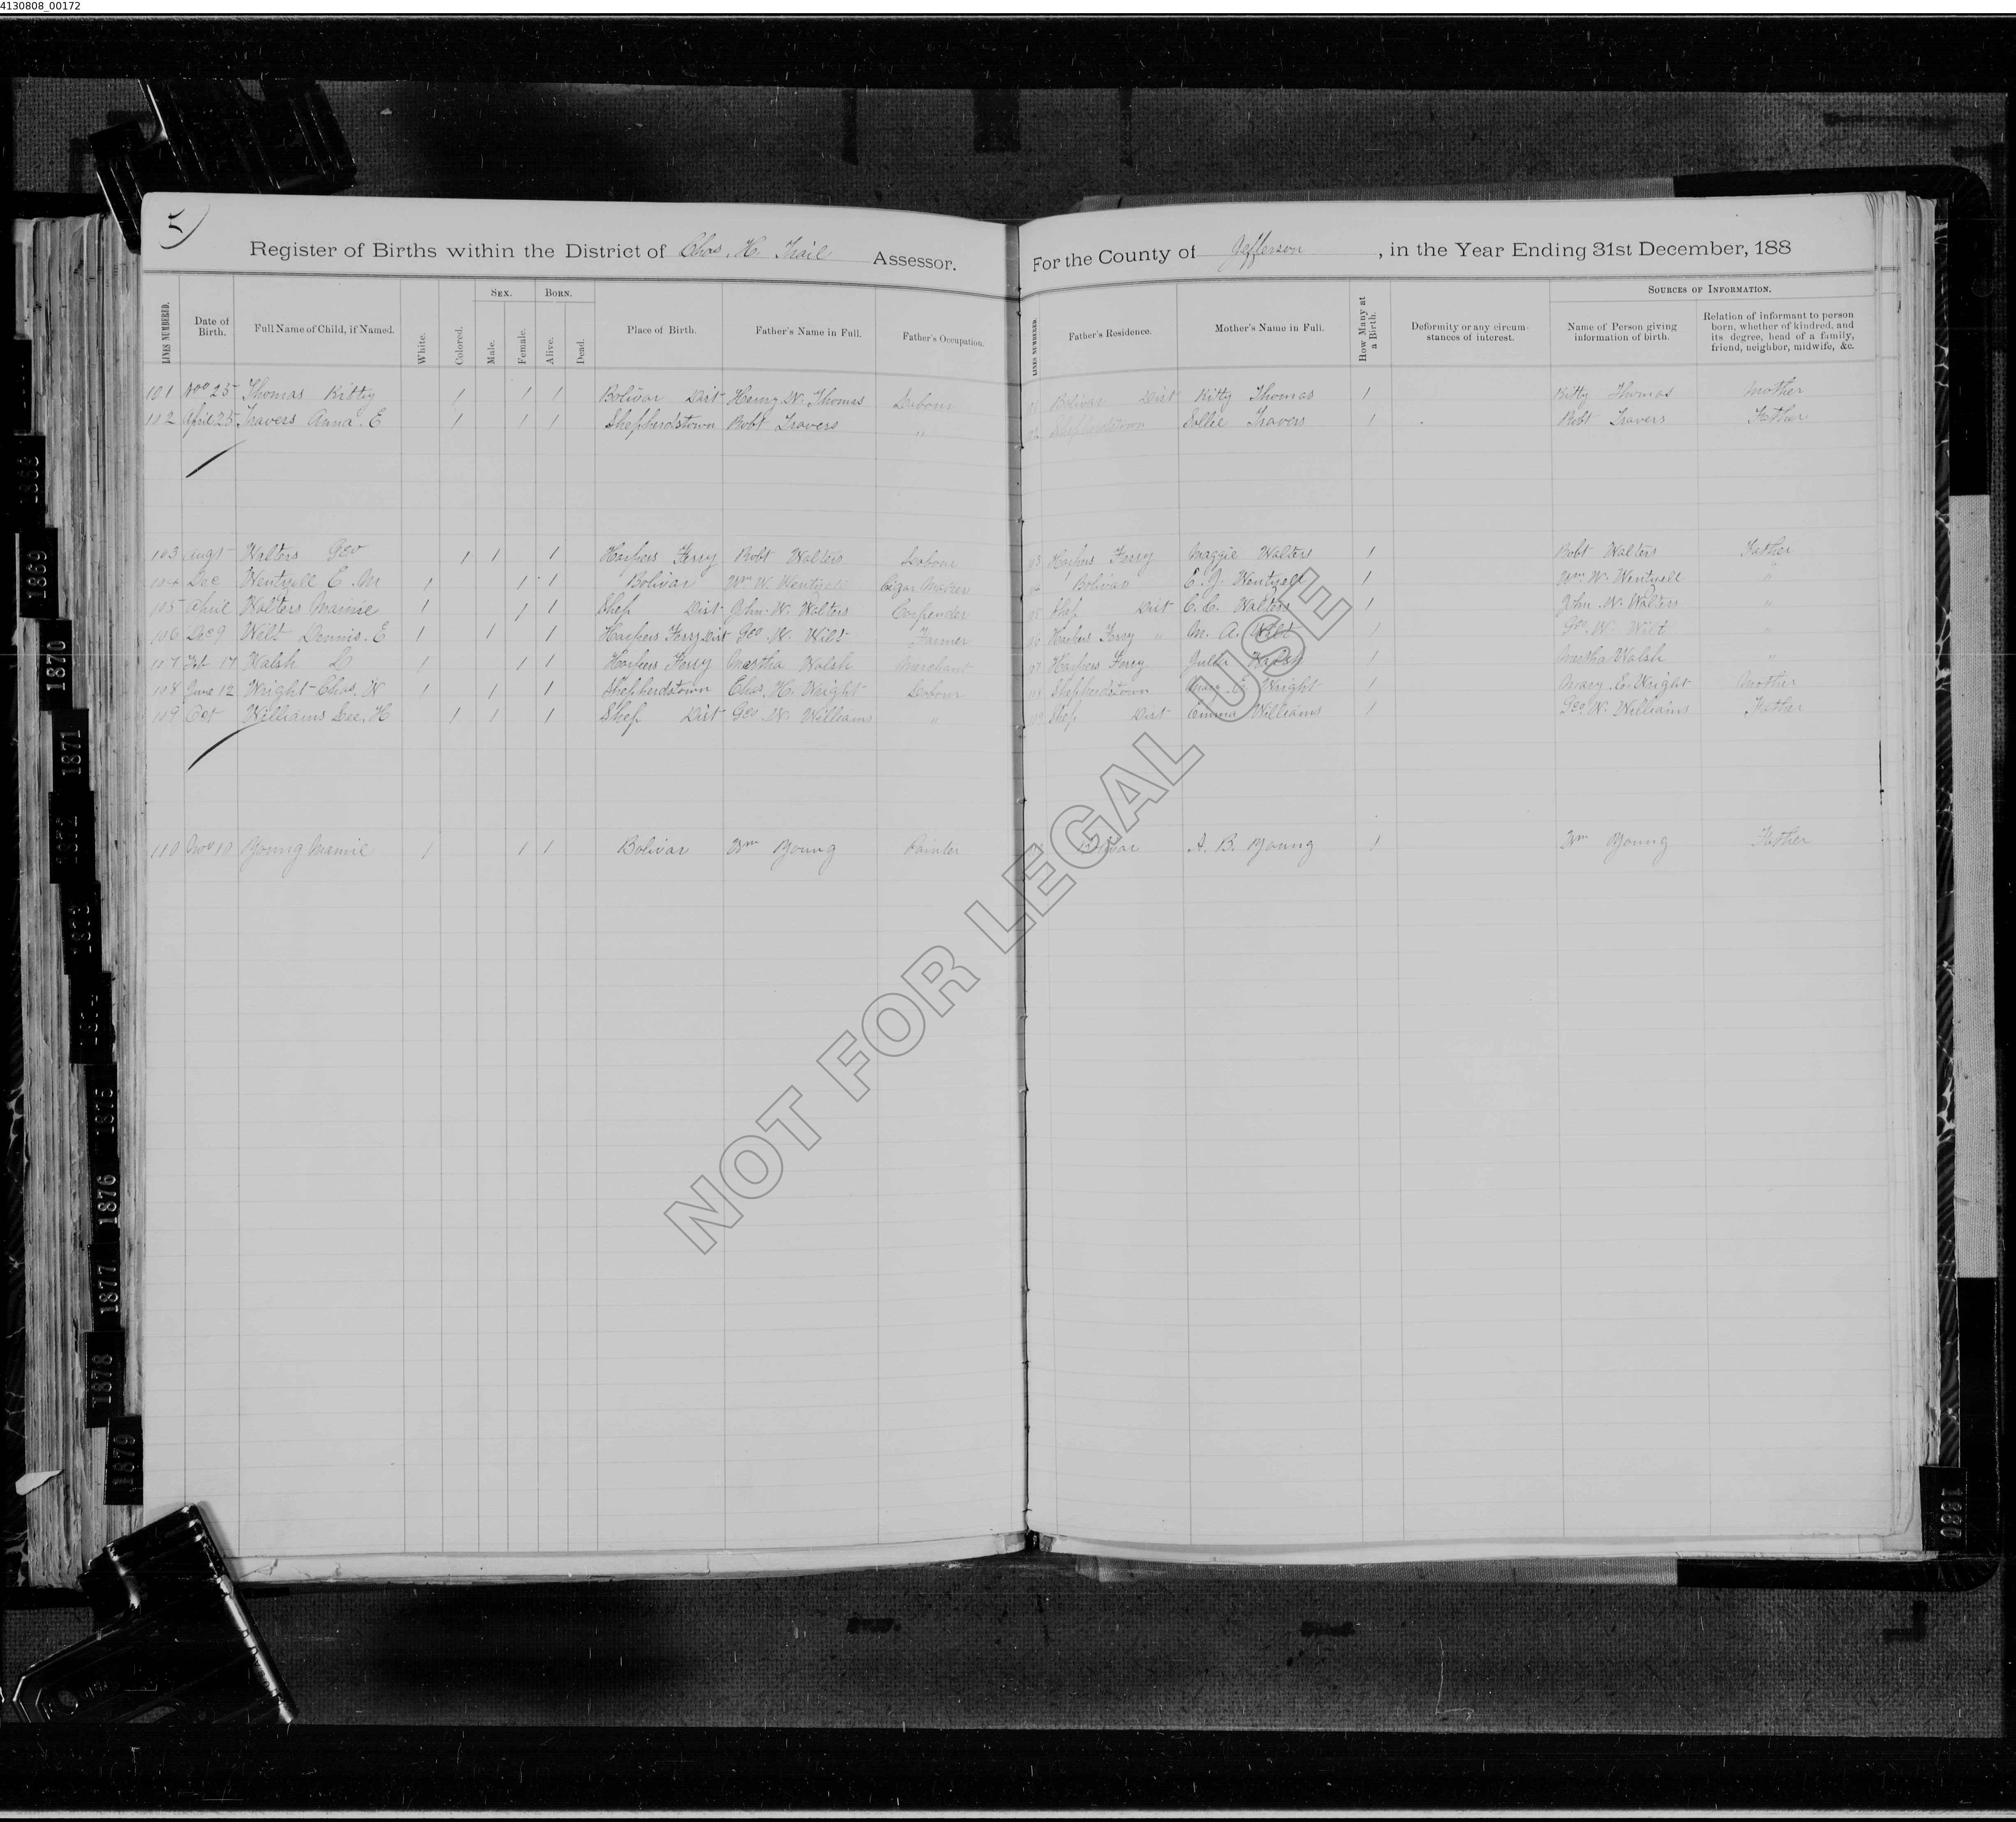 4130808_00172
5)
Register of Births within the District of Chas. H. Trail Assessor.
For the County of Jefferson, in the Year Ending 31st December, 188
LINES NUMBERED. Date of Birth. Full Name of Child, if Named. White. Colored. SEX. Male. Female. BORN. Alive. Dead. Place of Birth. Father's Name in Full. Father's Occupation.
LINES NUMBERED. Father's Residence. Mother's Name in Full. How Many at a Birth. Deformity or any circumstances of interest. SOURCES OF INFORMATION. Name of Person giving information of birth. Relation of informant to person born, whether of kindred, and its degree, head of a family, friend, neighbor, midwife, &c.
101 Nov 25 Thomas Kitty 1 1 1 Bolivar Dist Henry W. Thomas Labour Bolivar Dist Kitty Thomas 1 Kitty Thomas Mother
102 April 25 Travers Anna. E 1 1 1 Shepherdstown Robt Travers " Shepherdstown Sollie Travers 1 Robt Travers Father
103 Augt Walters Geo 1 1 1 Harpers Ferry Robt Walters Labour 03 Harpers Ferry Maggie Walters 1 Robt Walters Father
104 Dec Wentzell E. M 1 1 1 Bolivar Wm W. Wentzell Cigar Maker 04 Bolivar E. J. Wentzell 1 Wm. W. Wentzell "
105 April Walters Mainie 1 1 1 Shep Dist John. W. Walters Carpender 05 Shep Dist C. C. Walters 1 John. W. Walters "
106 Dec 9 Wilt Dennis. E 1 1 1 Harpers Ferry Dist Geo. W. Wilt Farmer 06 Harpers Ferry " M. A. Wilt 1 Geo. W. Wilt "
107 Feb 17 Walsh L 1 1 1 Harpers Ferry Martha Walsh Merchant 07 Harpers Ferry Julia Walsh 1 Martha Walsh "
108 June 12 Wright Chas. W 1 1 1 Shepherdstown Chas. H. Wright Labour 08 Shepherdstown Mary. E. Wright 1 Mary. E. Wright Mother
109 Oct Williams Lee. H 1 1 1 Shep Dist Geo. W. Williams " 09 Shep Dist Emma Williams 1 Geo. W. Williams Father
110 Nov 10 Young Mamie 1 1 1 Bolivar Wm Young Painter Bolivar A. B. Young 1 Wm Young Father
NOT FOR LEGAL USE
1869
1870
1871
1872
1873
1875
1876
1877
1878
1879
1880